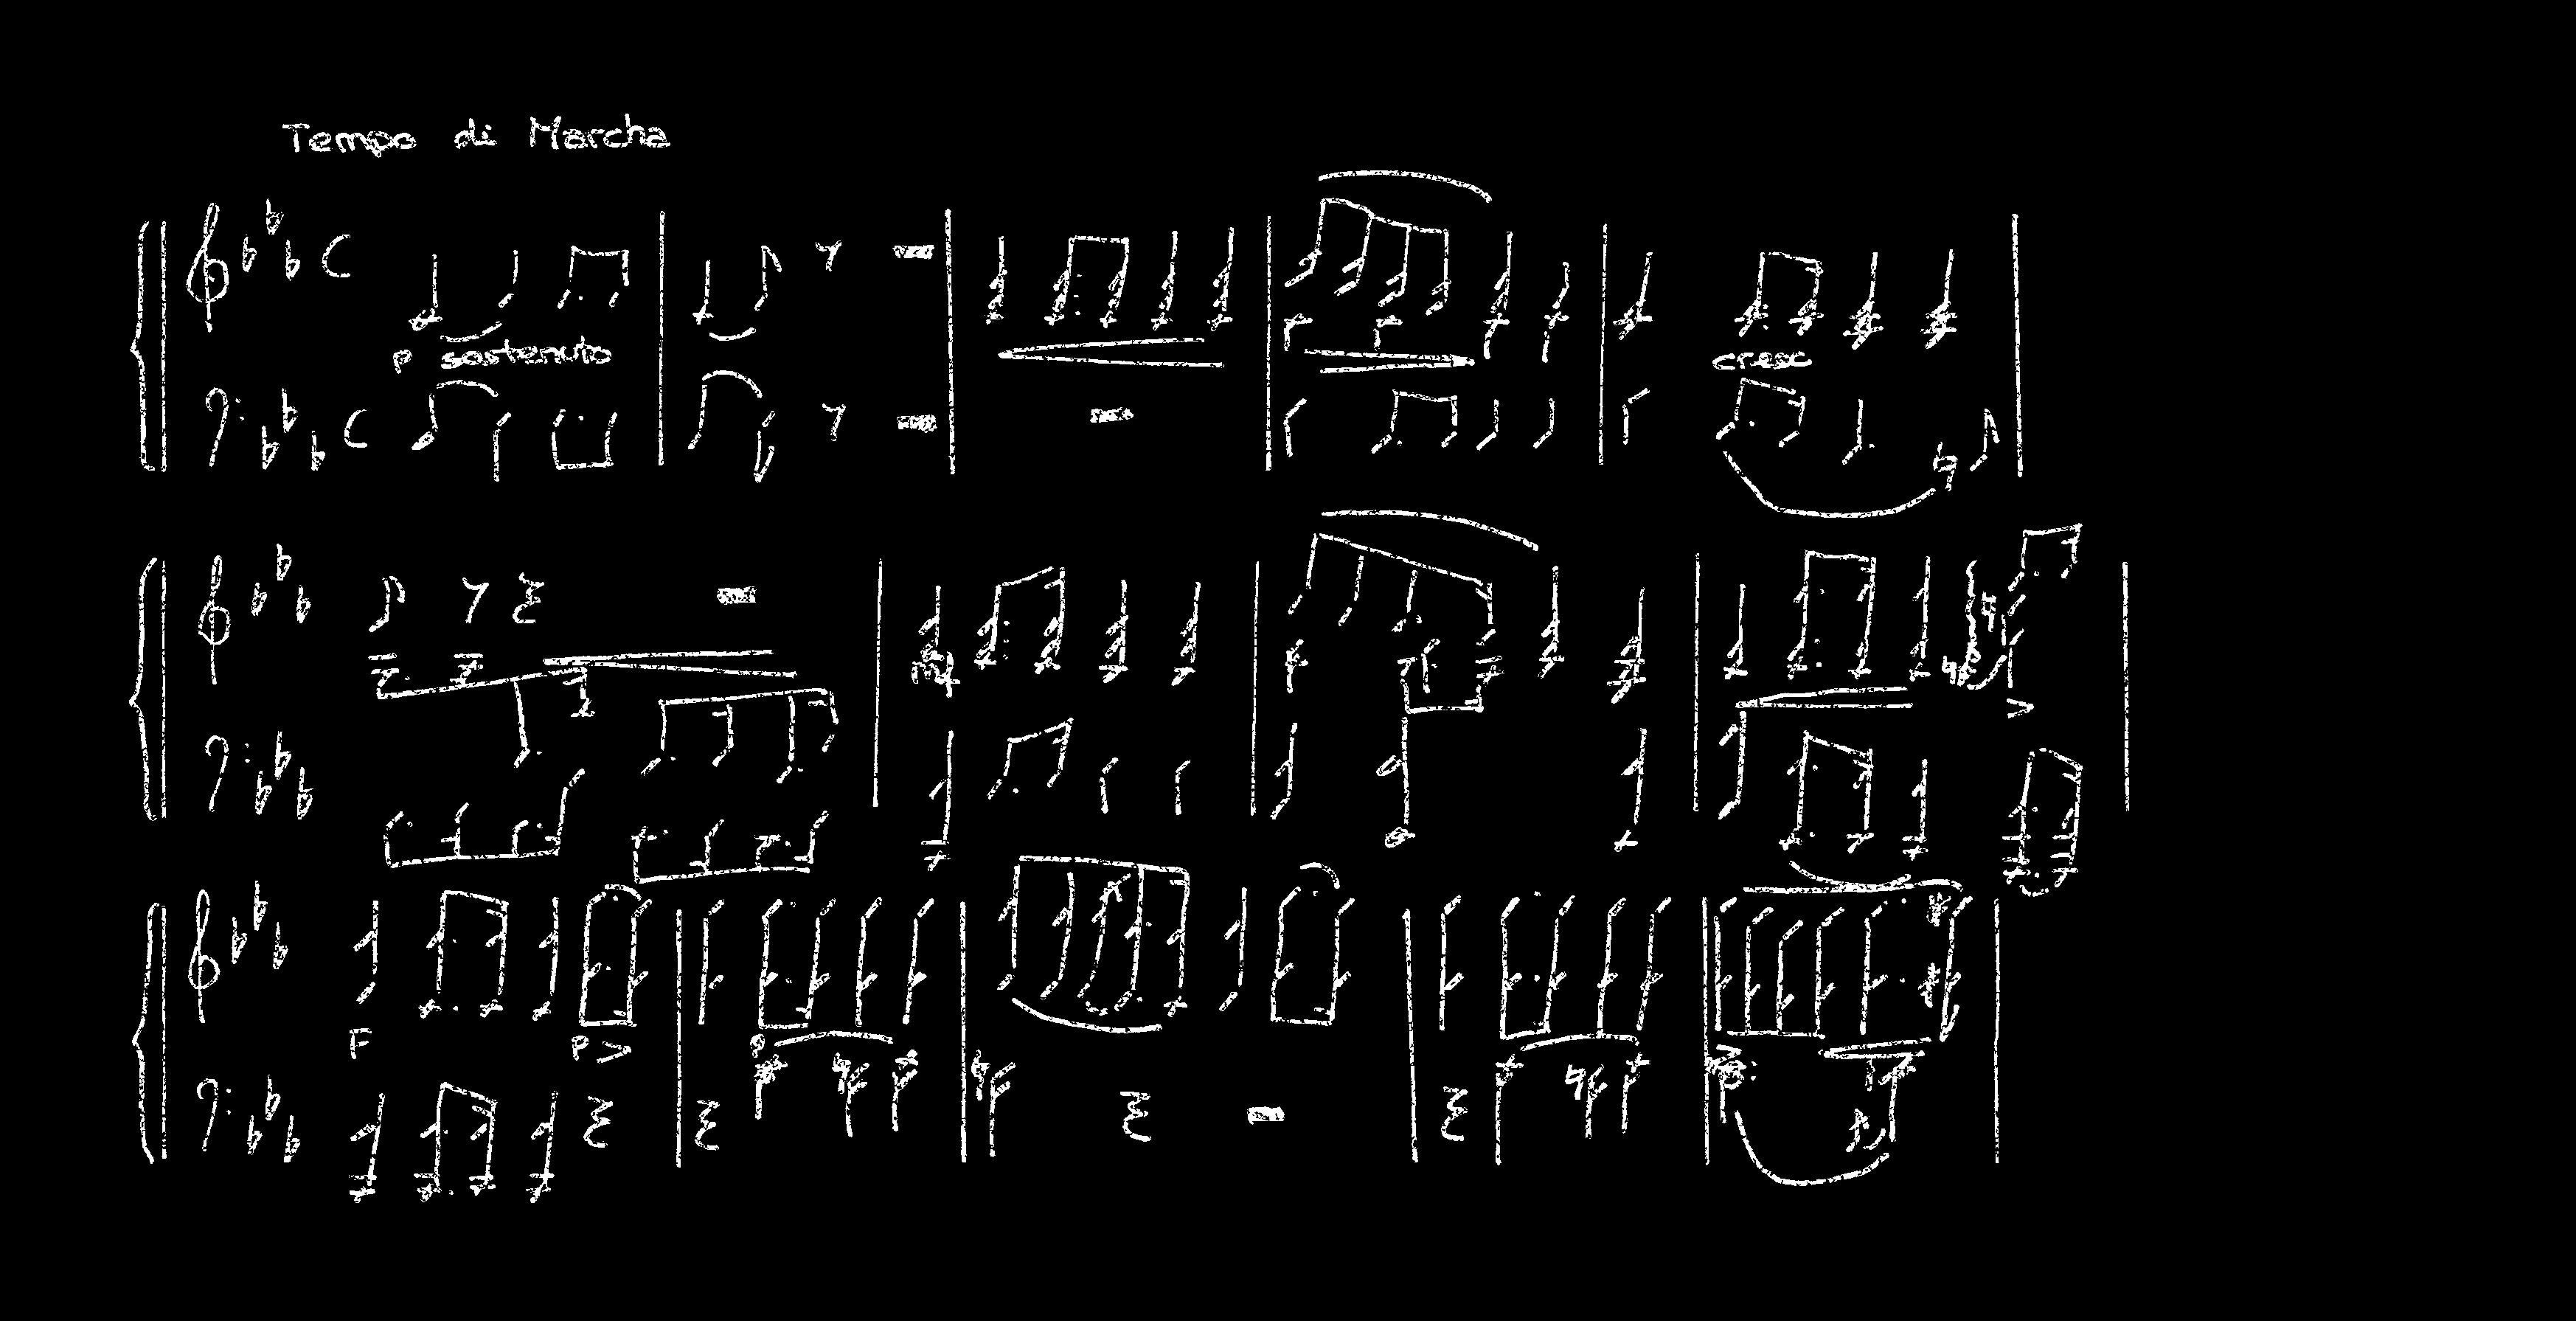 Tempo di Marcha
P sostenuto
cresc
mf
F
P
P